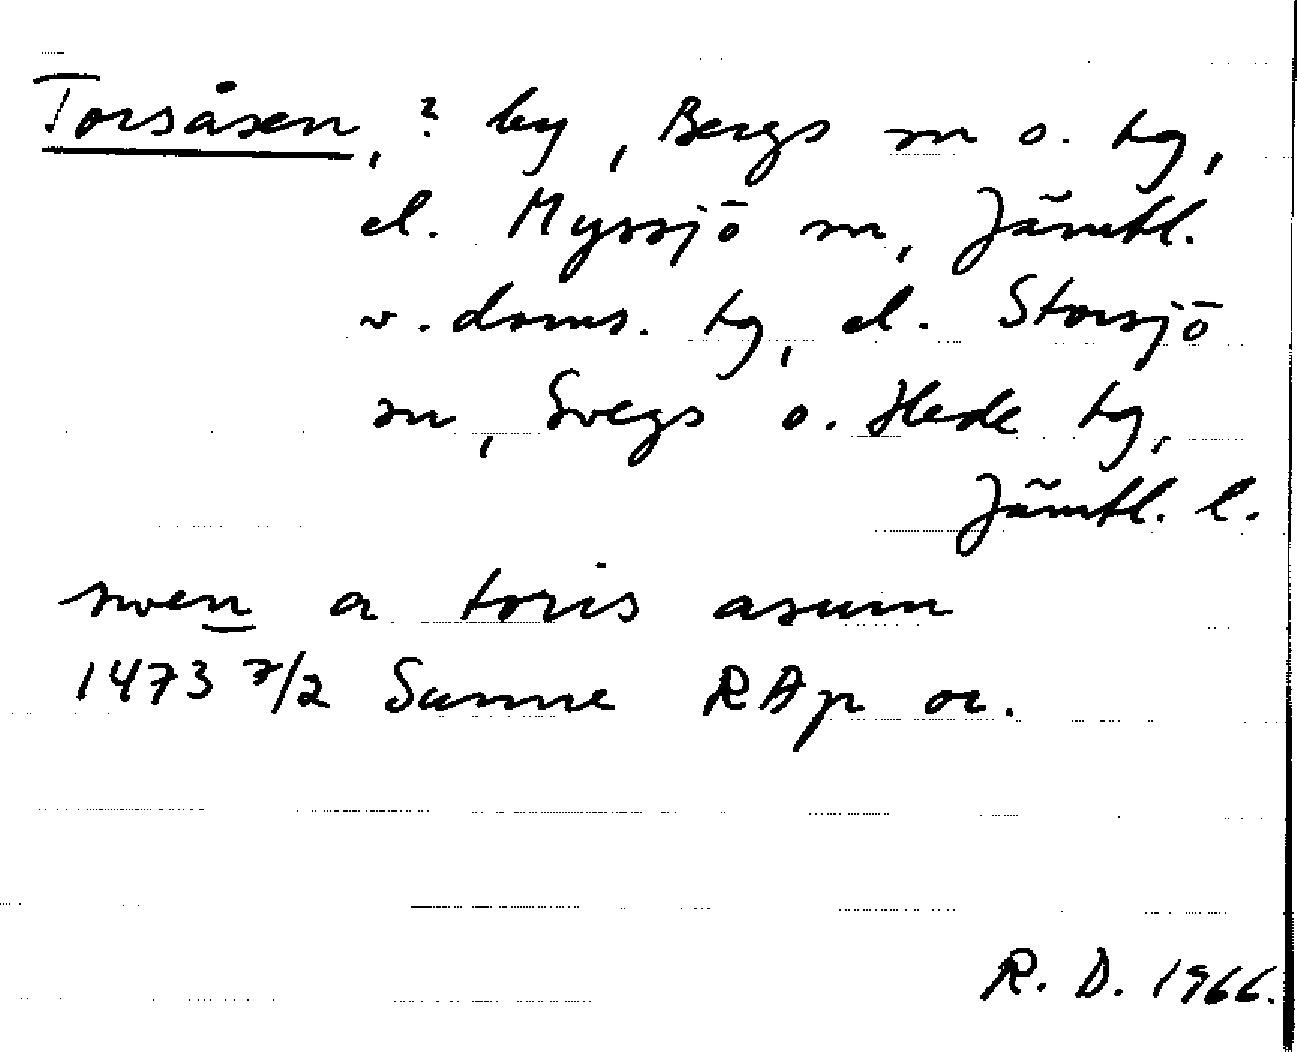 Torsåsen, ? by, Bergs sn o. tg,
el. Myssjö sn, Jämtl.
v. doms. tg, el. Storsjö
sn, Svegs o. Hede tg,
Jämtl. l.
swen a toris asum
1473 7/2 Sunne RAp or.
R. D. 1966.